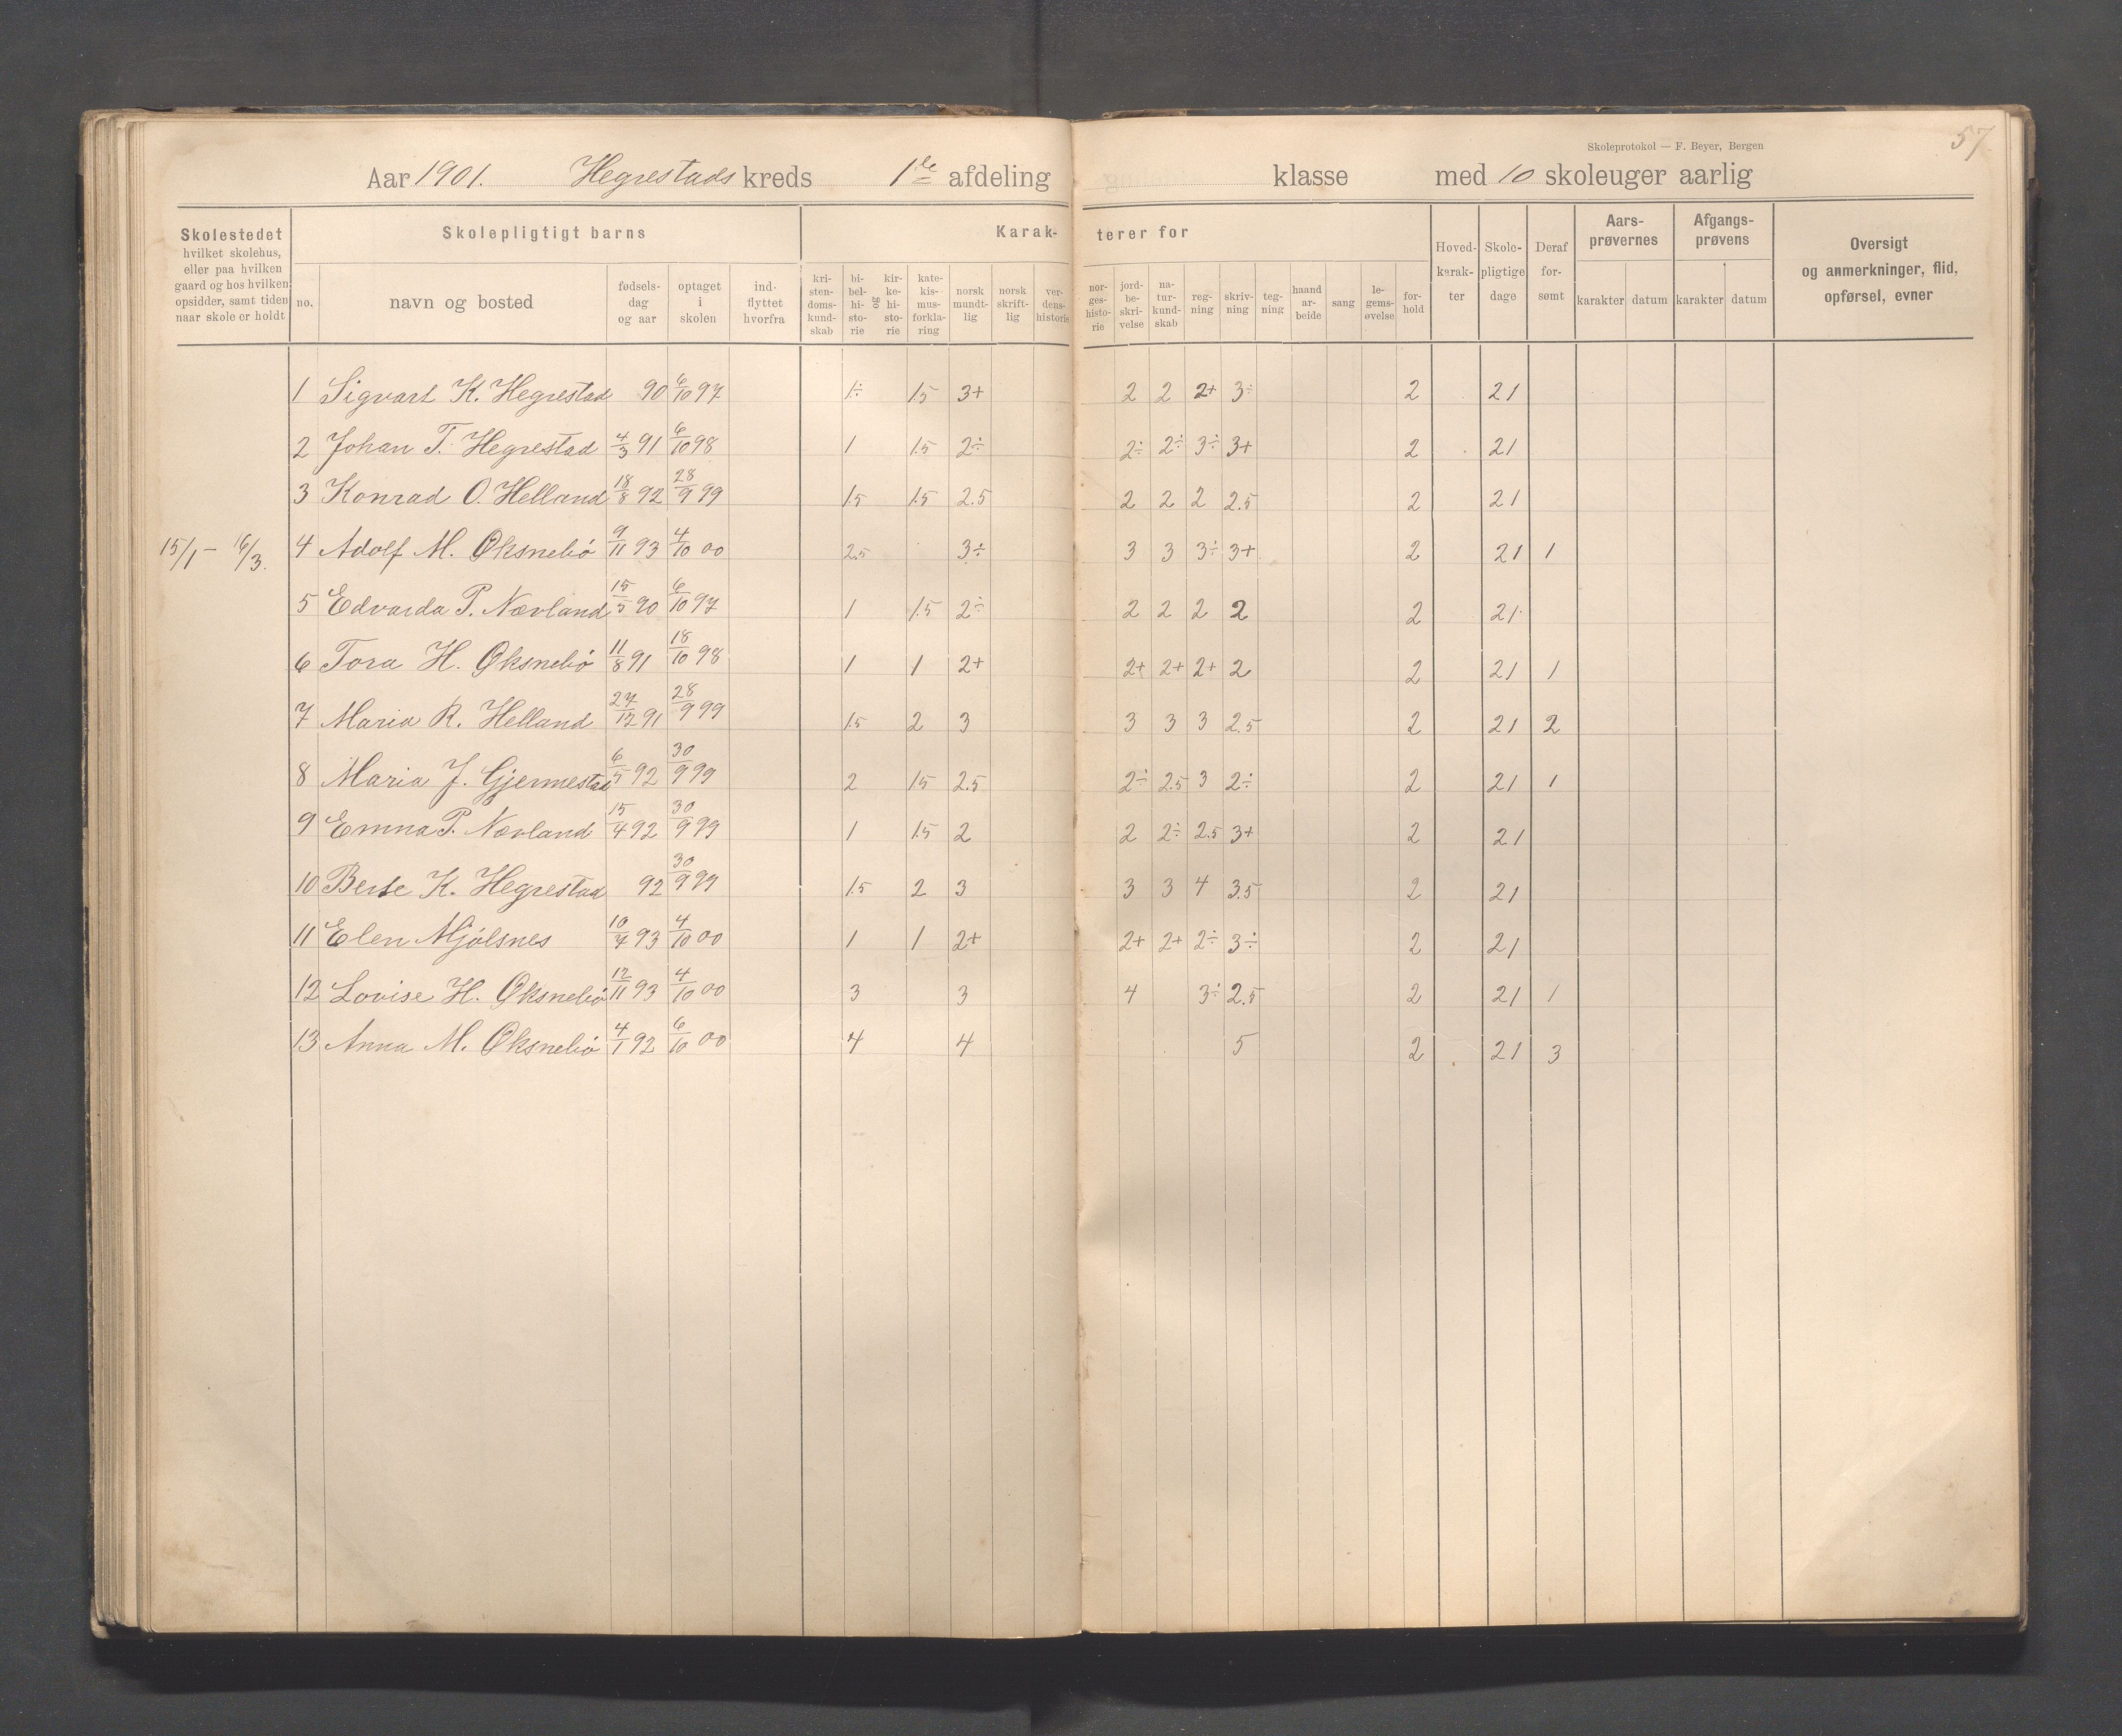 57
Skoleprotokol — F. Beyer, Bergen
Aar 1901. Hegrestads kreds 1ste afdeling klasse med 10 skoleuger aarlig
Skolestedet hvilket skolehus, eller paa hvilken gaard og hos hvilken opsidder, samt tiden naar skole er holdt
Skolepligtigt barns
no. navn og bosted fødsels-dag og aar optaget i skolen ind-flyttet hvorfra
Karak-terer for
kri-sten-doms-kund-skab bi-bel-hi-sto-rie og kir-ke-hi-sto-rie kate-kis-mus-forkla-ring norsk mundt-lig norsk skrift-lig ver-dens-historie
nor-ges-histo-rie jord-be-skri-velse na-tur-kund-skab reg-ning skriv-ning teg-ning haand ar-beide sang le-gems-øvelse for-hold
Hoved-karak-ter Skole-pligtige dage Deraf for-sømt
Aars-prøvernes karakter datum
Afgangs-prøvens karakter datum
Oversigt og anmerkninger, flid, opførsel, evner
1 Sigvart K. Hegrestad 90 6/10 97 1÷ 1.5 3+ 2 2 2+ 3÷ 2 21
2 Johan T. Hegrestad 4/3 91 6/10 98 1 1.5 2÷ 2÷ 2÷ 3÷ 3+ 2 21
3 Konrad O. Helland 18/8 92 28/9 99 1.5 1.5 2.5 2 2 2 2.5 2 21
15/1 – 16/3. 4 Adolf M. Øksnebø 9/11 93 4/10 00 2.5 3÷ 3 3 3÷ 3+ 2 21 1
5 Edvarda P. Nævland 15/5 90 6/10 97 1 1.5 2÷ 2 2 2 2 2 21
6 Tora H. Øksnebø 11/8 91 18/10 98 1 1 2+ 2+ 2+ 2+ 2 2 21 1
7 Maria R. Helland 27/12 91 28/9 99 1.5 2 3 3 3 3 2.5 2 21 2
8 Maria J. Gjermestad 6/5 92 30/9 99 2 1.5 2.5 2÷ 2.5 3 2÷ 2 21 1
9 Emma P. Nævland 15/4 92 30/9 99 1 1.5 2 2 2÷ 2.5 3+ 2 21
10 Berte K. Hegrestad 92 30/9 99 1.5 2 3 3 3 4 3.5 2 21
11 Elen Mjølsnes 10/4 93 4/10 00 1 1 2+ 2+ 2+ 2÷ 3÷ 2 21
12 Lovise H. Øksnebø 12/11 93 4/10 00 3 3 4 3÷ 2.5 2 21 1
13 Anna M. Øksnebø 4/1 92 6/10 00 4 4 5 2 21 3